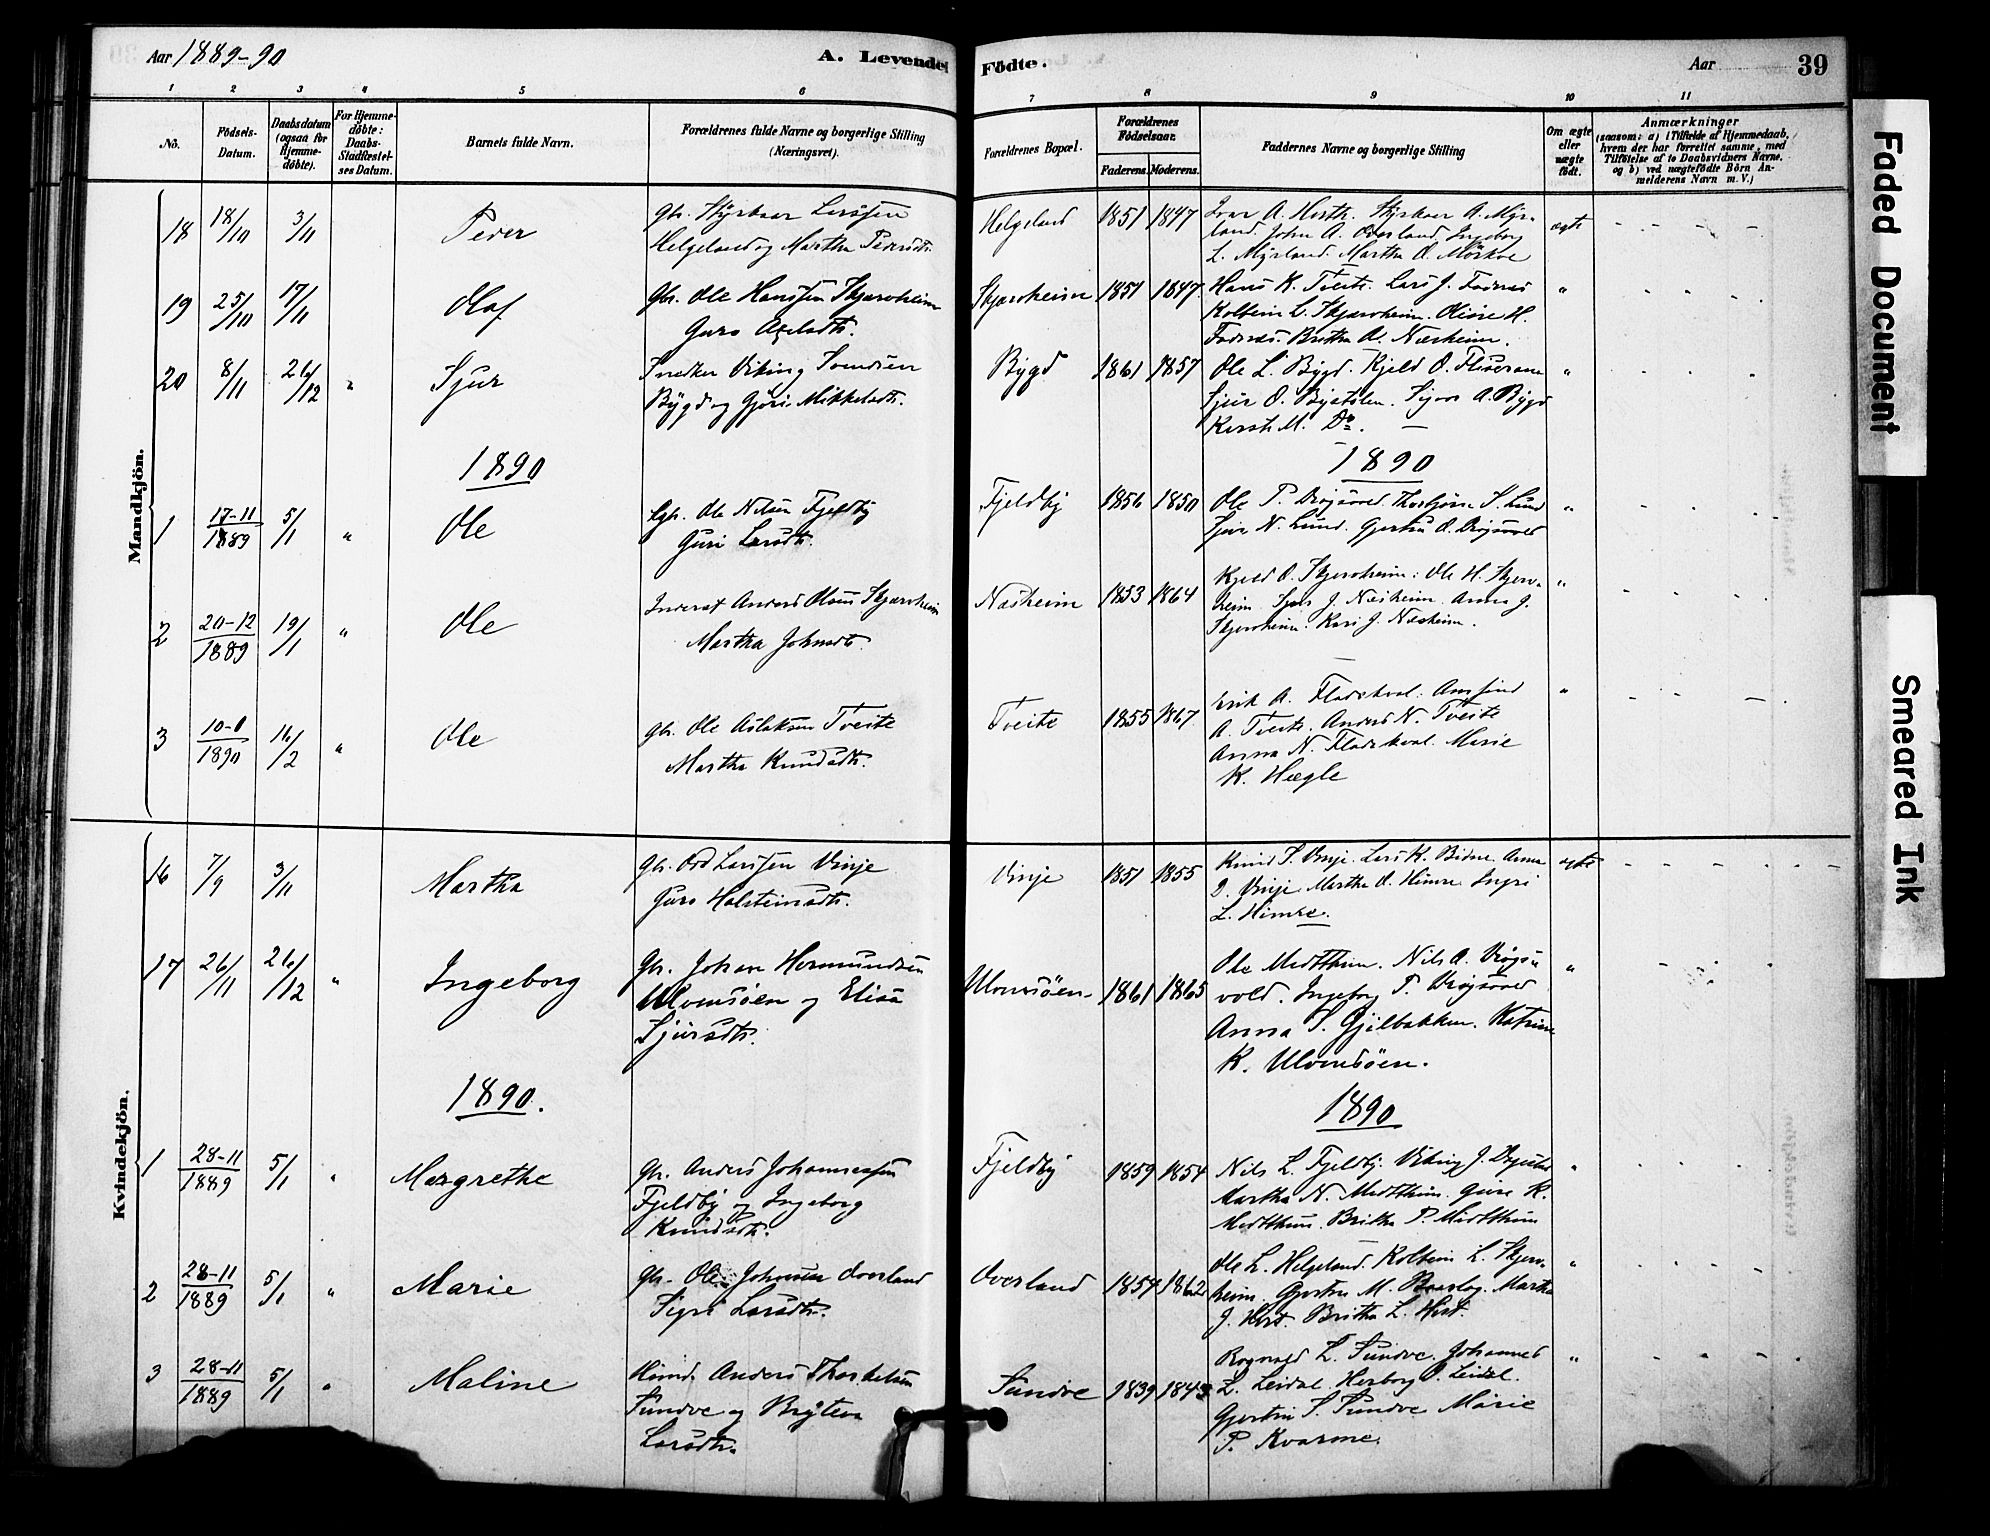 Aar 1889-90
A. Levendef
1 2 3 4 5 6
No. Födsels-Datum. Daabsdatum (ogsaa for Hjemme-döbte). For Hjemme-döbte: Daabs-Stadfæstel-ses Datum. Barnets fulde Navn. Forældrenes fulde Navne og borgerlige Stilling (Næringsvei).
Födte.
Aar
39
7 8 9 10 11
Forældrenes Bopæl. Forældrenes Födselsaar. Faderens. Moderens. Faddernes Navne og borgerlige Stilling Om ægte eller uægte födt. Anmærkninger
(saasom: a) i Tilfælde af Hjemmedaab,
hvem der har forrettet samme, med
Tilföielse af to Daabsvidners Navne,
og b) ved uægtefödte Börn An-
melderens Navn m. V.)
Mandkjön.
18 18/10 3/11 Peder Gbr. Styrkaar Larssen
Helgeland og Martha Pedersdtr.
Helgeland 1851 1847 Ivar A. Horth. Styrkaar A. Myr-
land. John A. Øvsland. Ingeborg
L. Myrland. Martha O. Mörkve
ægte
19 25/10 17/11 Olaf Gbr. Ole Hanssen Skjærvheim
Guro Axelsdtr.
Skjærvheim 1851 1847 Hans K. Tveite. Lars J. Fadnes
Kolbein L. Skjærvheim. Oline H.
Fadnes. Britha A. Næsheim.
"
20 8/11 26/12 " Sjur Snedker Viking Svendsen
Bygd og Gjöri Mikkelsdtr.
Bygd 1861 1857 Ole L. Bygd. Kjeld O.
Sjur O. A. Bygd
M. Do. —
"
1890
1890
1 17-11/1889 5/1 " Ole Gbr. Ole Nilsen Fjeldby
Guri Larsdtr.
Fjeldby 1856 1850 Ole P. Drögsvold. Thorbjörn S. Lund
Sjur N. Lund. Gjertru O. Drögsvold
"
2 20-12/1889 19/1 " Ole Inderst Anders Olsen Skjærvheim
Martha Johnsdtr.
Næsheim 1853 1864 Kjeld O. Skjervheim. Ole H. Skjerv-
heim. J. Næsheim. Anna J.
Skjervheim. Kari J. Næsheim.
"
3 10-1/1890 16/2 " Ole Gbr. Ole Aslaksen Tveite
Martha Knudsdtr.
Tveite 1855 1867 Erik A. Fladekval. Amfind
A. Tveite. Anders N. Tveite
Anna N. Fladekval. Marie
K. Hægle
"
Kvindekjön.
16 7/9 3/11 Martha Gbr. Odd Larssen Vinje
Guro Holsteinsdtr.
Vinje 1851 1855 Knud S. Vinje. Lars K. Bidne. Anna
O. Vinje. Martha O. Himre. Ingri
L. Himre.
ægte
17 26/11 26/12 " Ingeborg Gbr. Johan Hermundsen
Ulvundsöen og Elisa
Sjursdtr.
Ulvundsöen 1861 1865 Ole Medtthun. Nils A. Drögs-
vold. Ingeborg P. Drögsvold
Anna S. Gjelbakken. Katrine
K. Ulvundsöen.
"
1890.
1890
1 28-11/1889 5/1 " Margrethe Gbr. Anders Johannessen
Fjeldby og Ingeborg
Knudsdtr.
Fjeldby 1859 1854 Nils L. Fjeldby. Viking J.
Martha N. Medtthun. Guro K.
Medtthun. Britha P. Medtthun
"
2 28-11/1889 5/1 " Marie Gbr. Ole Johnsen Øvsland
Sigri Larsdtr.
Øvsland 1857 1862 Ole L. Helgeland. Kolbein L. Skjerv-
heim. Gjertru M. Martha
J. Hort. Britha L. Hort.
"
3 28-11/1889 5/1 " Maline Huusm. Anders Thorkelsen
Sundve og Bryteva
Larsdtr.
Sundve 1839 1843 Rognald L. Sundve. Johannes
L. Leidal. Herborg O. Leidal.
Gjertru S. Sundve. Marie
P. Kvarme.
"
Faded Document
Smeared Ink